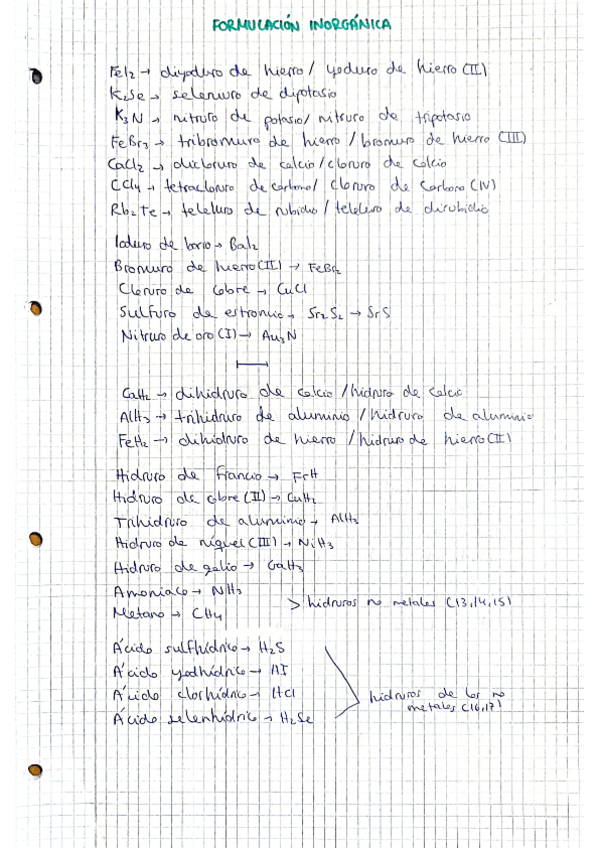 FORMULACIÓN INORGÁNICA
FeI₂ → diyoduro de hierro / yoduro de hierro (II)
K₂Se → seleniuro de dipotasio
K₃N → nitruro de potasio / nitruro de tripotasio
FeBr₃ → tribromuro de hierro / bromuro de hierro (III)
CaCl₂ → dicloruro de calcio / cloruro de calcio
CCl₄ → tetracloruro de carbono / cloruro de carbono (IV)
Rb₂Te → teleluro de rubidio / teleluro de dirubidio
Ioduro de bario → BaI₂
Bromuro de hierro (II) → FeBr₂
Cloruro de cobre → CuCl
Sulfuro de estroncio → Sr₂S₂ → SrS
Nitruro de oro (I) → Au₃N
CaH₂ → dihidruro de calcio / hidruro de calcio
AlH₃ → trihidruro de aluminio / hidruro de aluminio
FeH₂ → dihidruro de hierro / hidruro de hierro (II)
Hidruro de francio → FrH
Hidruro de cobre (II) → CuH₂
Trihidruro de aluminio → AlH₃
Hidruro de níquel (III) → NiH₃
Hidruro de galio → GaH₃
Amoniaco → NH₃
Metano → CH₄
> hidruros no metales (13,14,15)
Ácido sulfhídrico → H₂S
Ácido yodhídrico → HI
Ácido clorhídrico → HCl
Ácido selenhídrico → H₂Se
hidruros de los no
metales (16,17)